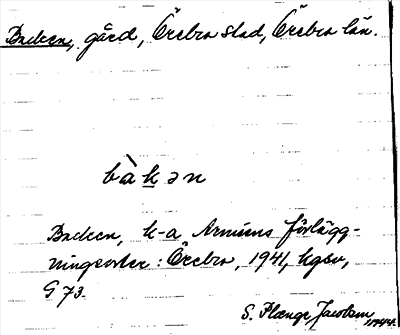 Backen, gård, Örebro stad, Örebro län.
bàkən
Backen, k-a Arméens förlägg-
ningsorter: Örebro, 1941, hgsv,
G 73.
S. Plænge Jacobson, 1944.